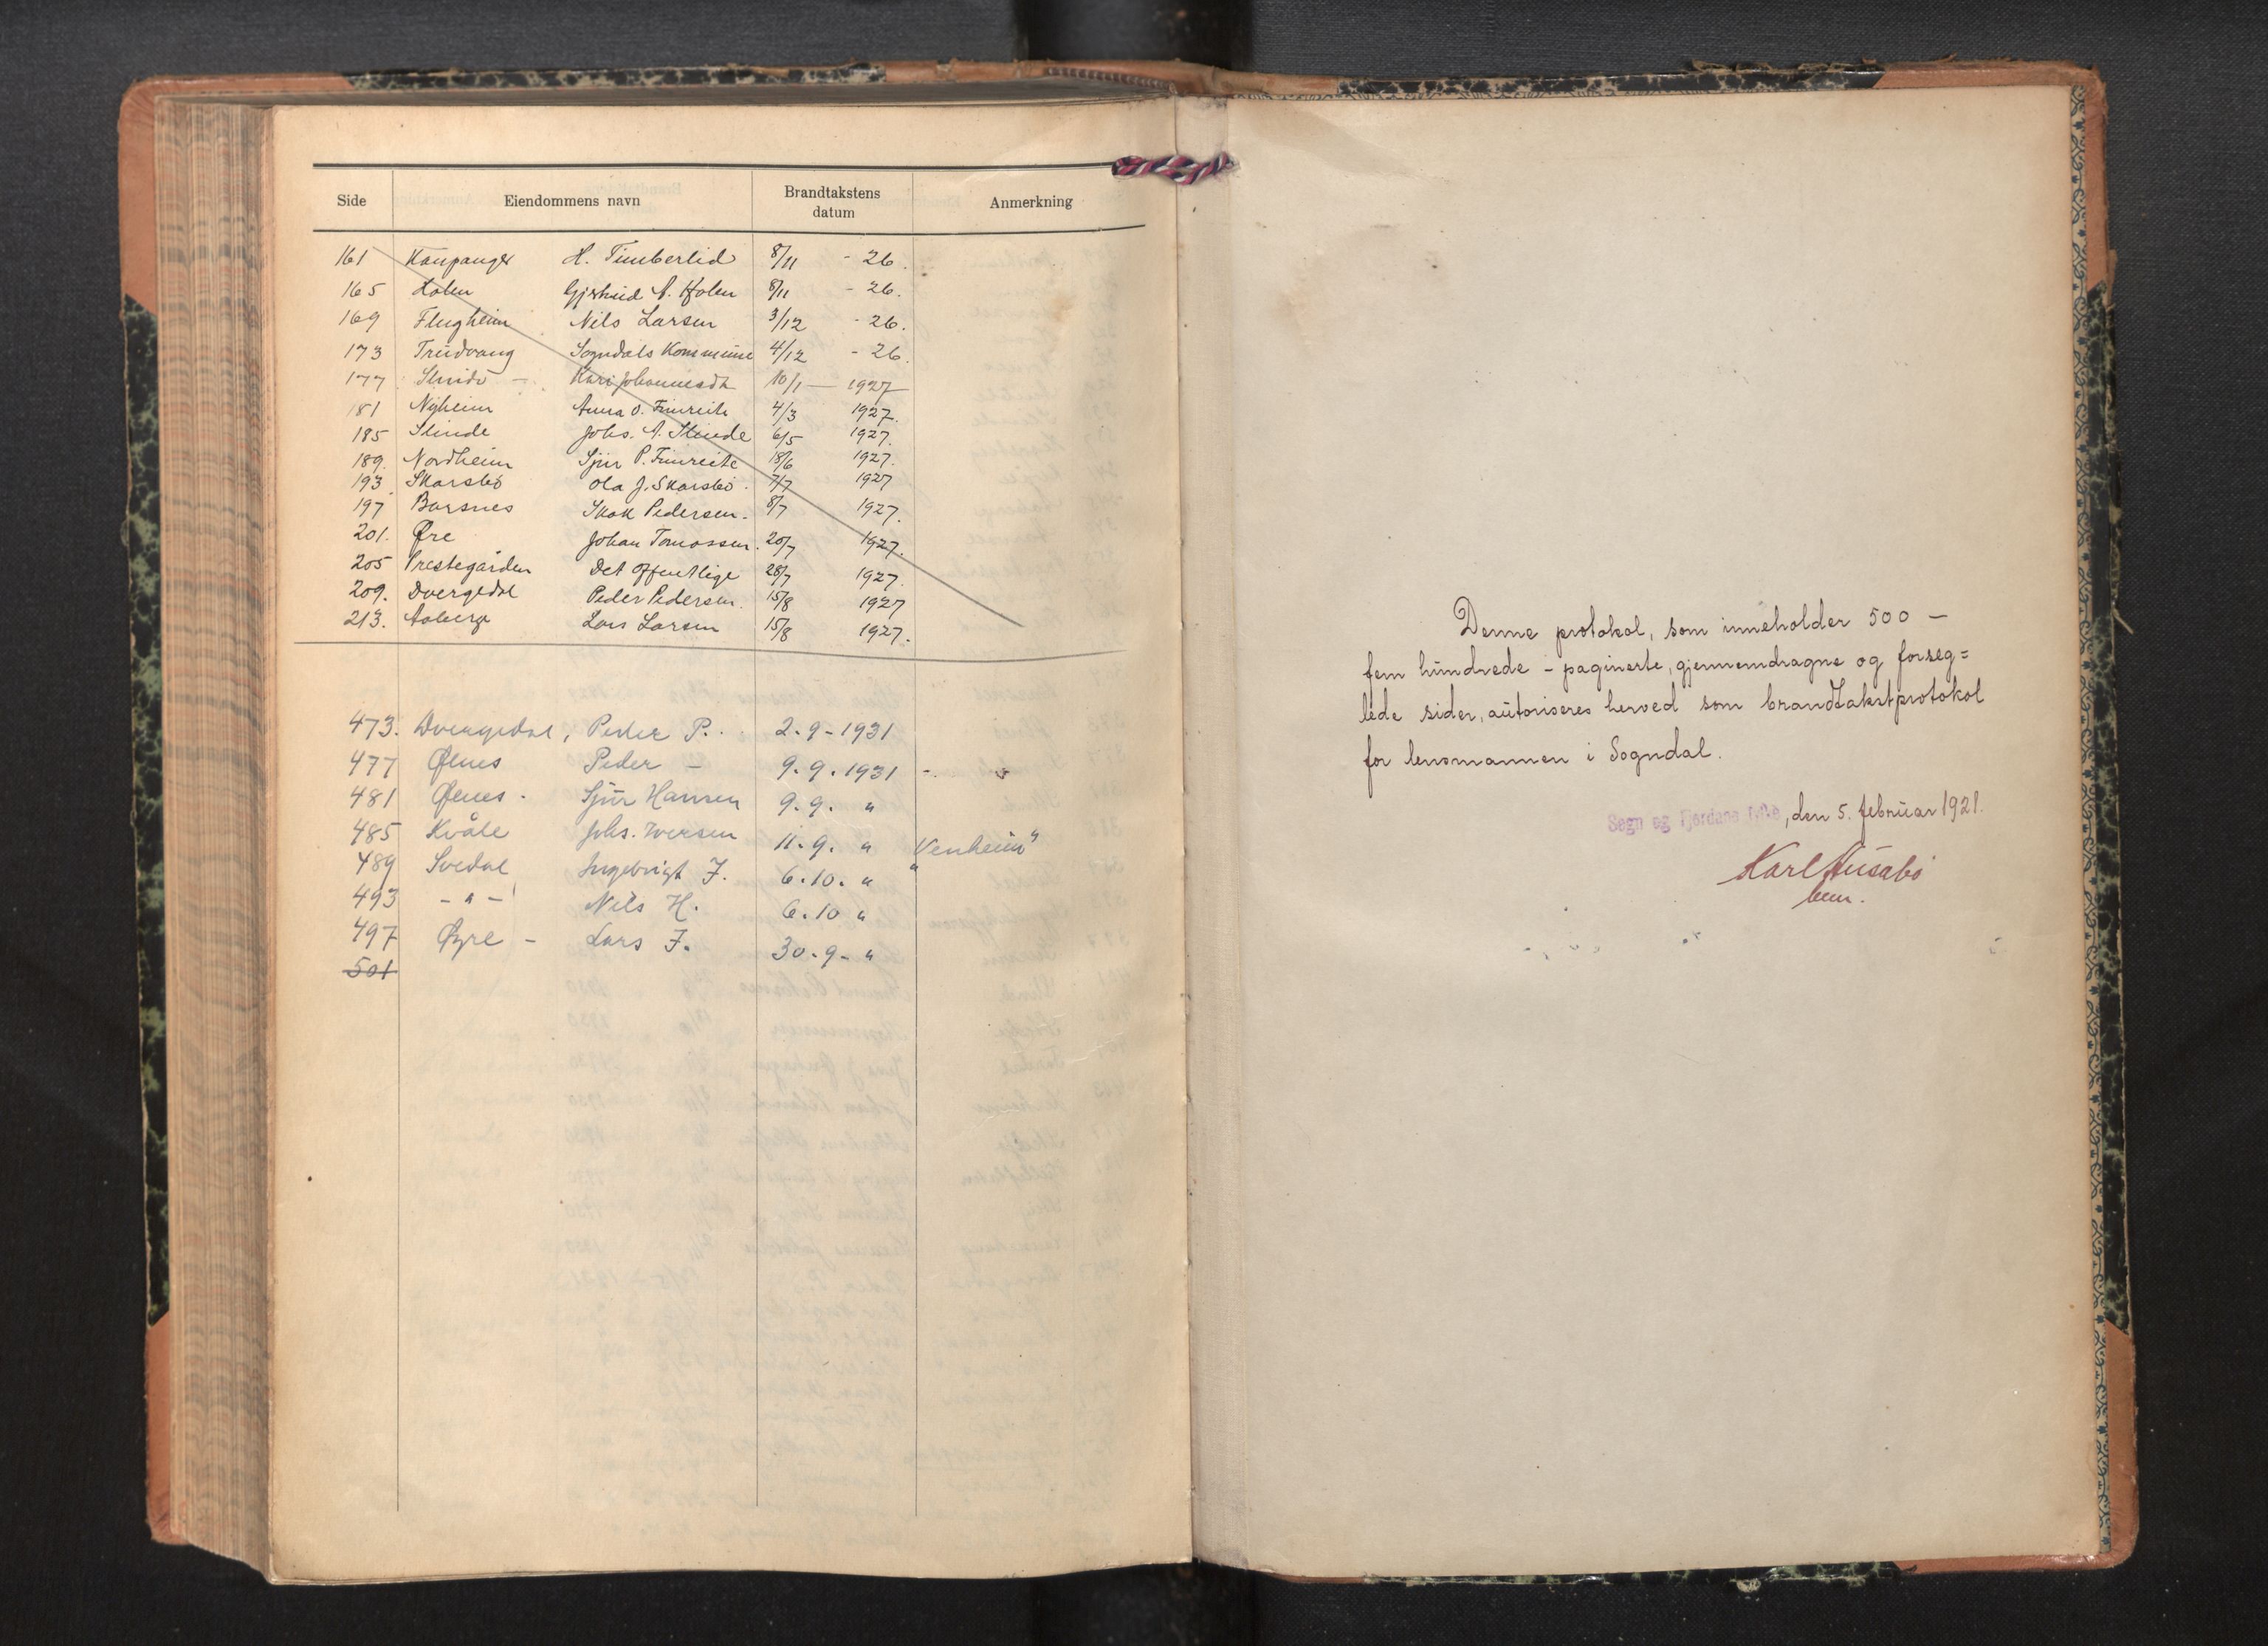 Side Eiendommens navn Brandtakstens datum Anmerkning
161 Kaupanger H. Timberlid 8/11 - 26.
165 Holen Gjertrud A. Holen 8/11 - 26.
169 Flugheim Nils Larsen 3/12 - 26.
173 Trudvang Sogndals Kommune 4/12 - 26.
177 Slinde - Kari Johannesdtr 10/1 - 1927
181 Nyheim Anna O. Fimreite 4/3 1927.
185 Slinde Johs. A. Slinde 6/5 1927.
189. Nordheim Sjur P. Fimreite 18/6 1927.
193 Skarsbø Ola J. Skarsbø. 7/7 1927
197 Barsnes Skak Pedersen. 8/7 1927.
201. Øre Johan Tomassen. 20/7 1927.
205 Prestegården Det offentlige 28/7 1927.
209. Dvergedal Peder Pedersen. 15/8 1927
213. Aaberge Lars Larsen 15/8 1927.
473. Dvergedal, Peder P. 2.9-1931
477 Ølnes Peder - 9.9.1931 -
481 Ølnes. Sjur Hansen 9.9. "
485 Kvåle Johs. Iversen 11.9. " "Venheim"
489 Svedal Ingebrigt J. 6.10. "
493 - " - Nils H. 6.10 "
497 Øyre - Lars J. 30.9- "
501
Denne protokol, som inneholder 500 -
fem hundrede - paginerte, gjennemdragne og forseg=
lede sider, autoriseres herved som brandtakstprotokol
for lensmannen i Sogndal.
Sogn og Fjordane fylke, den 5. februar 1921.
Karl Husabø